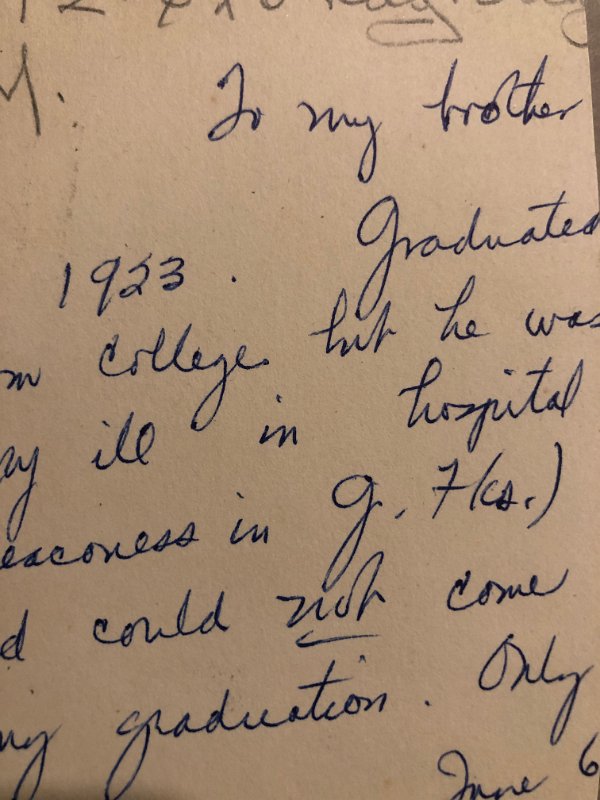 M. To my brother
1923. Graduated
college but he was
ill in hospital
eaconess in G. Fks.)
d could not come
my graduation. Only
June 6